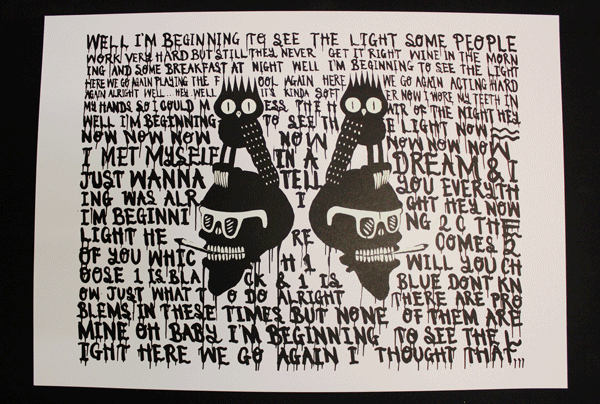 WELL I'M BEGINNING TO SEE THE LIGHT SOME PEOPLE
WORK VERY HARD BUT STILL THEY NEVER GET IT RIGHT WINE IN THE MORN
ING AND SOME BREAKFAST AT NIGHT WELL I'M BEGINNING TO SEE THE LIGHT
HERE WE GO AGAIN PLAYING THE F OOL AGAIN HERE WE GO AGAIN ACTING HARD
AGAIN ALRIGHT WELL... HEY, WELL IT'S KINDA SOFT ER NOW I WORE MY TEETH IN
MY HANDS SO I COULD M ESS THE H AIR OF THE NIGHT HEY
WELL I'M BEGINNING TO SEE TH E LIGHT NOW
NOW NOW NOW NOW NOW NOW NOW
I MET MYSELF IN A DREAM & I
JUST WANNA TELL YOU EVERYTH
ING WAS ALR I GHT HEY NOW
I'M BEGINNI NG 2 C THE
LIGHT HE RE COMES 2
OF YOU WHIC H 1 WILL YOU CH
OOSE 1 IS BLA CK & 1 IS BLUE DONT KN
OW JUST WHAT T O DO ALRIGHT THERE ARE PRO
BLEMS IN THESE TIMES BUT NONE OF THEM ARE
MINE OH BABY I'M BEGINNING TO SEE THE L
IGHT HERE WE GO AGAIN I THOUGHT THAT,,,